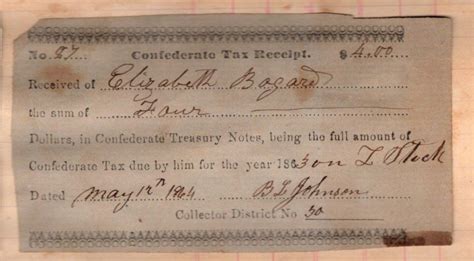 No. 27 Confederate Tax Receipt. $ 4.00
Received of Elizabeth Bogard
the sum of Four
Dollars, in Confederate Treasury Notes, being the full amount of
Confederate Tax due by him for the year 1863 on L Stock
Dated May 12th 1864 B L Johnson
Collector District No 30